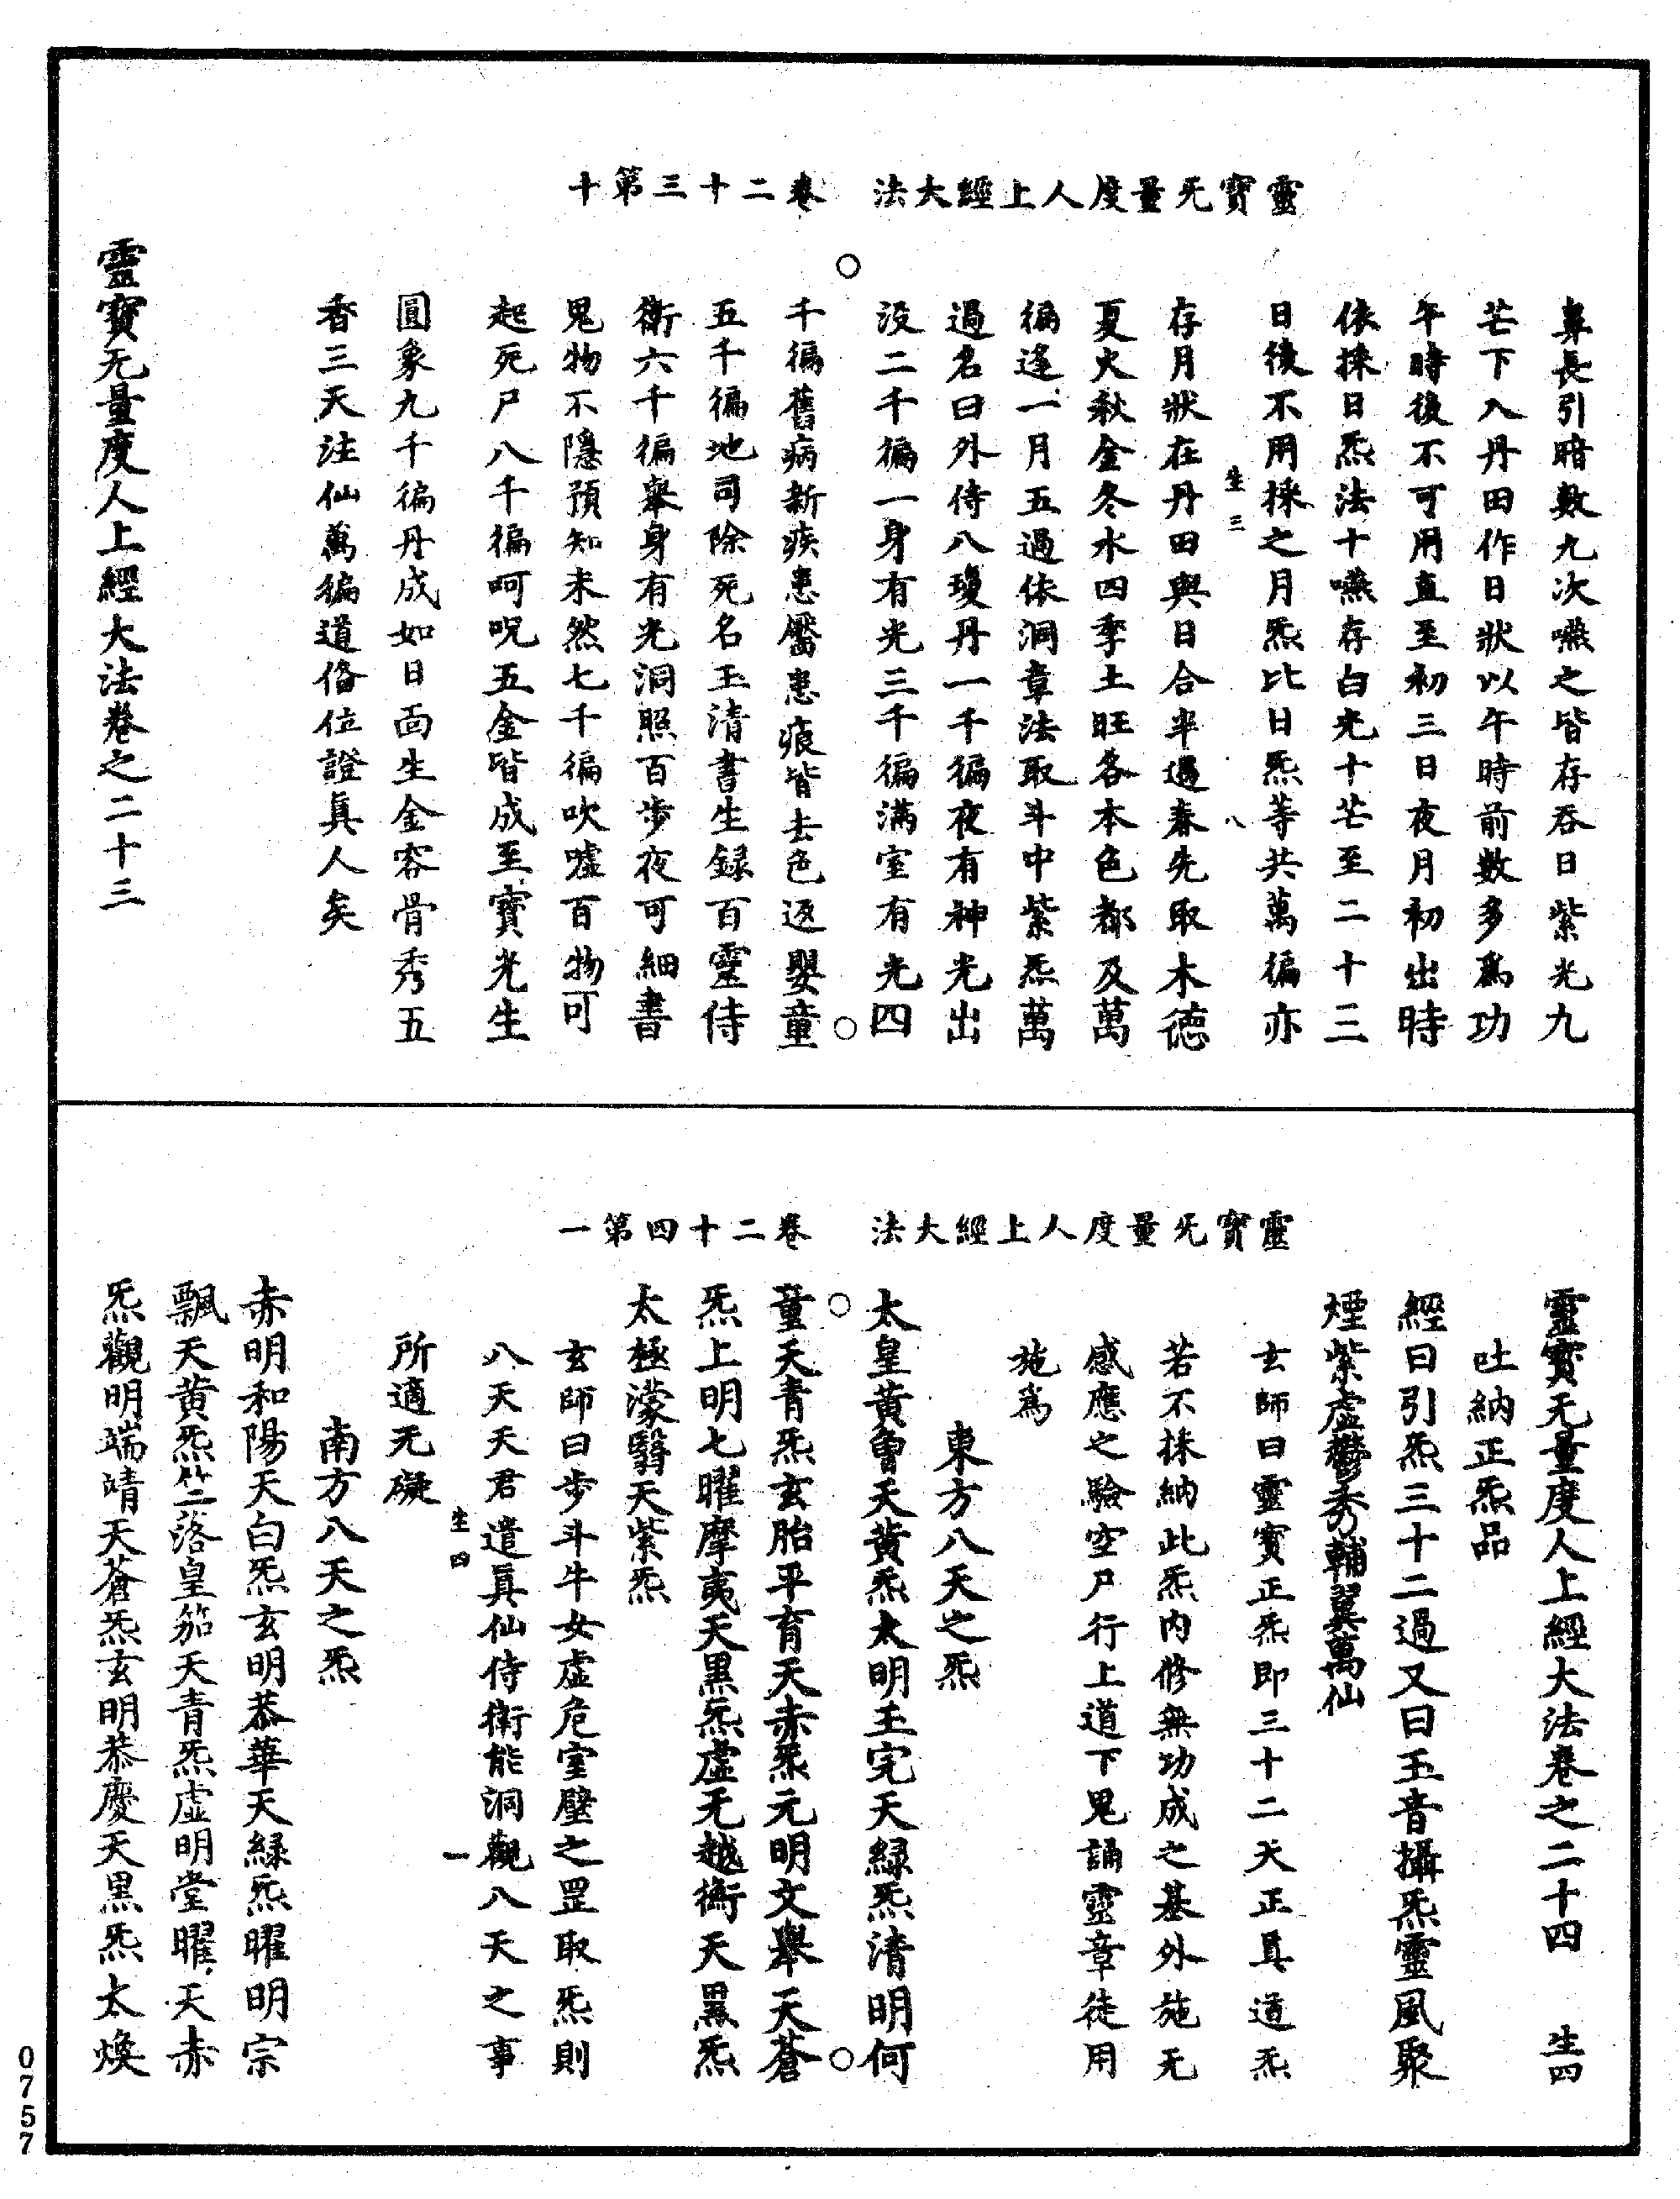 靈寶旡量度人上經大法　卷二十三第十
鼻長引暗數九次嚥之皆存吞日紫光九
芒下入丹田作日狀以午時前數多爲功
午時後不可用直至初三日夜月初出時
依採日炁法十嚥存白光十芒至二十三
日後不用採之月炁比日炁等共萬徧亦
生三　八
存月狀在丹田與日合半過春先取木德
夏火秋金冬水四季土旺各本色都及萬
徧逢一月五過依洞章法取斗中紫炁萬
過名曰外侍八瓊丹一千徧夜有神光出
沒二千徧一身有光三千徧滿室有光四
千徧舊病新疾患黶患痕皆去色返嬰童
五千徧地司除死名玉清書生録百靈侍
衛六千徧舉身有光洞照百步夜可細書
鬼物不隱預知未然七千徧吹噓百物可
起死尸八千徧呵呪五金皆成至寶光生
圓象九千徧丹成如日面生金容骨秀五
香三天注仙萬徧道俻位證眞人矣
靈寶无量度人上經大法卷之二十三
靈寶旡量度人上經大法　卷二十四第一
靈寶无量度人上經大法卷之二十四　生四
吐納正炁品
經曰引炁三十二過又曰玉音攝炁靈風聚
煙紫虛鬱秀輔翼萬仙
玄師曰靈寶正炁即三十二天正眞道炁
若不採納此炁內修無功成之基外施无
感應之驗空尸行上道下鬼誦靈章徒用
施爲
東方八天之炁
太皇黄曾天黄炁太明玉完天緑炁清明何
童天青炁玄胎平育天赤炁元明文舉天蒼
炁上明七曜摩夷天黑炁虛无越衡天黑炁
太極濛翳天紫炁
玄師曰步斗牛女虛危室壁之罡取炁則
八天天君遣眞仙侍衛能洞觀八天之事
生四　一
所適无礙
南方八天之炁
赤明和陽天白炁玄明恭華天緑炁曜明宗
飄天黄炁竺落皇笳天青炁虛明堂曜天赤
炁觀明端靖天蒼炁玄明恭慶天黑炁太煥
0757